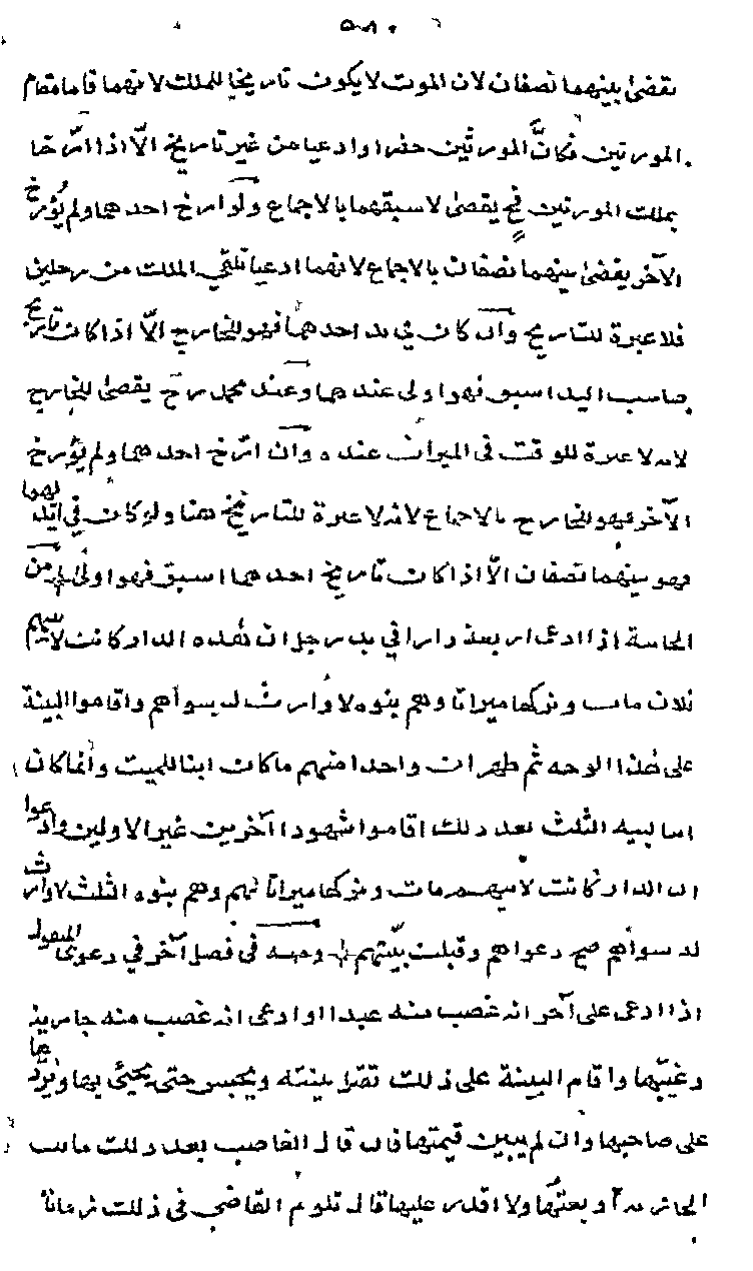 ٥٨٠
يقضى بينهما نصفان لان الموت لا يكون تاريخا للملك لانهما قاما مقام
المورثين فكانّ المورثين حضرا وادعيا من غير تاريخ الّا اذا ارّخا
بملك المورثين فح يقضى لاسبقهما بالاجماع ولو ارخ احدهما ولم يُؤرخ
الآخر يقضى بينهما نصفان بالاجماع لانهما ادعيا تلقي الملك من رجلين
فلا عبرة للتاريخ وان كان في يد احدهما فهو للخارج الّا اذا كان تاريخ
صاحب اليد اسبق فهو اولى عندهما وعند محمد رح يقضى للخارج
لانه لا عبرة للوقت في الميراث عنده وان ارّخ احدهما ولم يؤرخ
الآخر فهو للخارج بالاجماع لانه لا عبرة للتاريخ هنا ولو كان في ايديهما
فهو بينهما نصفان الّا اذا كان تاريخ احدهما اسبق فهو اولى من
الخامسة اذا ادعى اربعة دارا في يد رجل ان هذه الدار كانت لابيهم
فلان مات وتركها ميراثا وهم بنوه لا وارث له سواهم واقاموا البينة
على هذا الوجه ثم ظهر ان واحدا منهم ما كان ابنا للميت وانما كان
ابنا لبنيه الثلث بعد ذلك اقاموا شهودا آخرين غير الاولين وادعوا
ان الدار كانت لابيهم مات وتركها ميراثا لهم وهم بنوه الثلث لا وارث
له سواهم صح دعواهم وقبلت بيّنتهم وجه في فصل آخر في دعوى المنقول
اذا ادعى على آخر انه غصب منه عبدا او ادعى انه غصب منه جارية
وغيّبها واقام البينة على ذلك تقبل بينته ويحبس حتى يجئ بها ويردّها
على صاحبها وان لم يبين قيمتها فان قال الغاصب بعد ذلك ماتت
الجارية او بعتها ولا اقدر عليها قال تلوم القاضي في ذلك زمانا